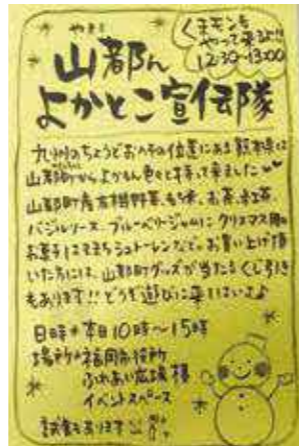 くまモンも
やって来るよ!!
12:30-13:00
やまと
山都ん
よかとこ宣伝隊
九州のちょうどおへその位置にある熊本県は
山都町からよかもん色々と持って来ました
山都町産有機野菜、もち米、お茶、紅茶、
バジルソース、ブルーベリージャムにクリスマス用の
お菓子はもちろんシュトーレンなど。お買い上げ頂
いた方には、山都町グッズが当たるくじ引き
もあります!!どうぞ遊びに来てはいよ♪
日時*本日10時〜15時
場所*福岡市役所
ふれあい広場 横
イベントスペース
試食もあります